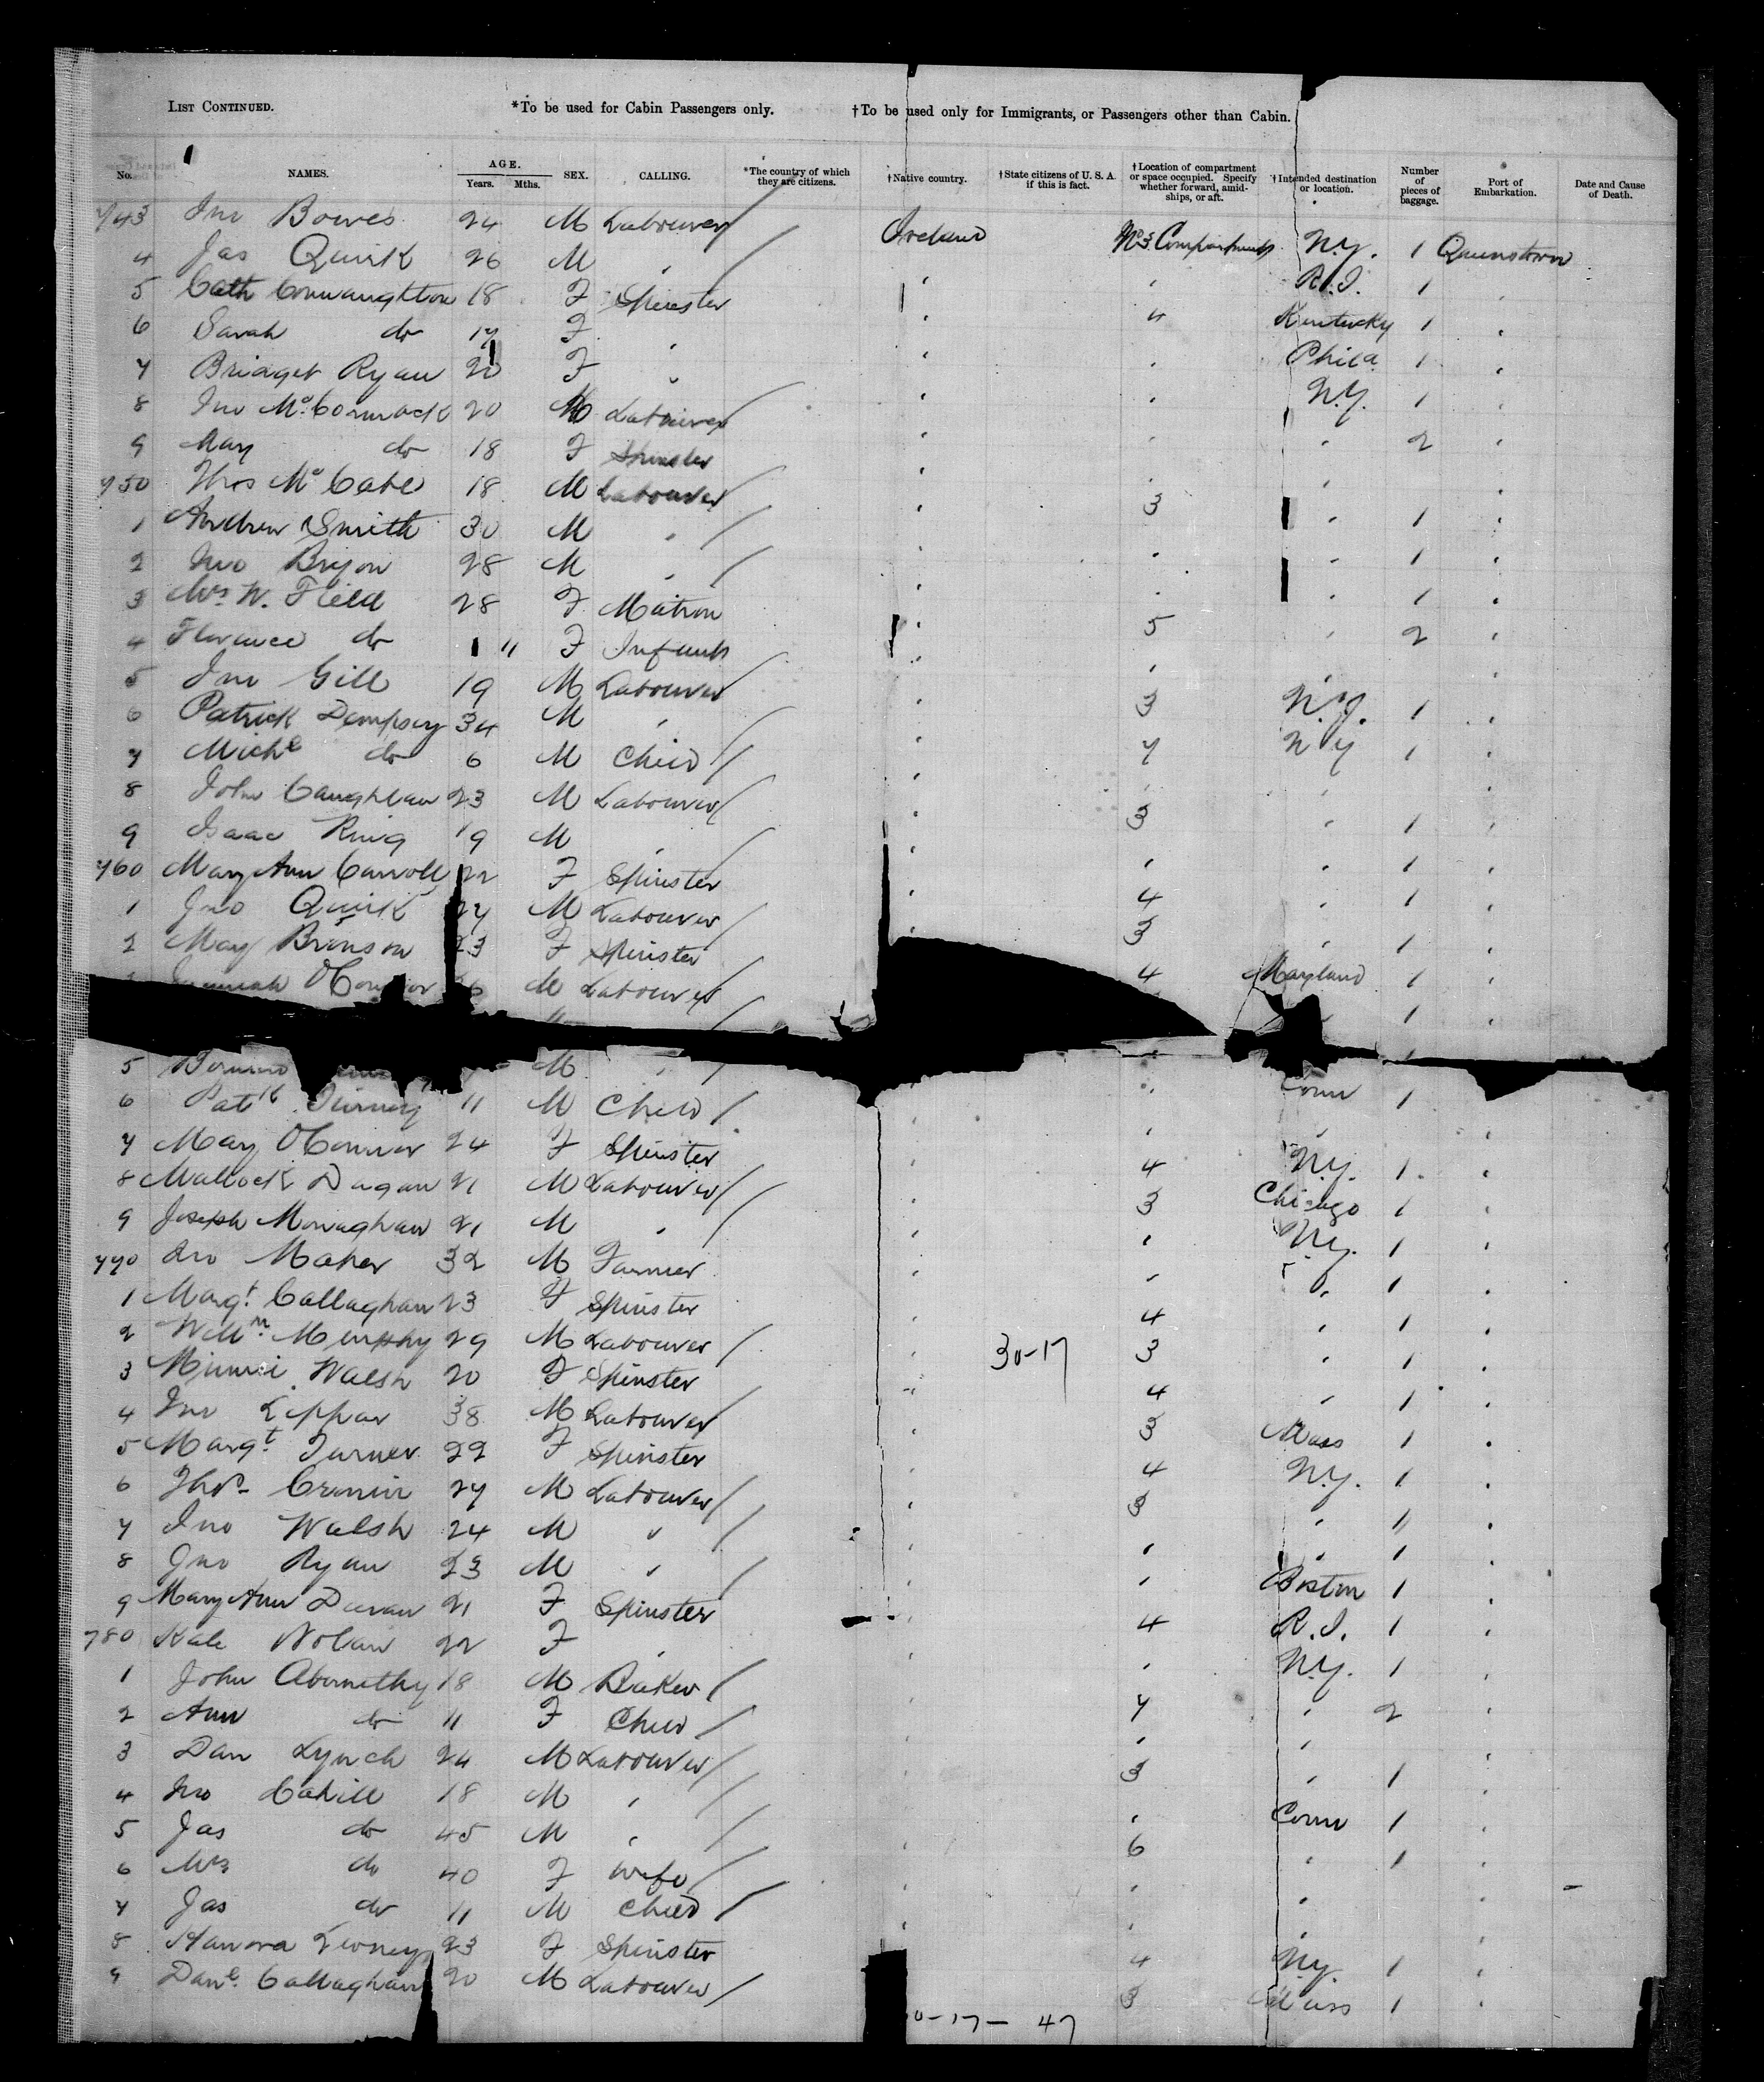 LIST CONTINUED. *To be used for Cabin Passengers only. †To be used only for Immigrants, or Passengers other than Cabin.
No. NAMES. AGE. Years. Mths. SEX. CALLING. *The country of which they are citizens. †Native country. †State citizens of U. S. A. if this is fact. †Location of compartment or space occupied. Specify whether forward, amidships, or aft. †Intended destination or location. Number of pieces of baggage. Port of Embarkation. Date and Cause of Death.
743 Jno Bowes 24 M Labourer Ireland No 3 Compartment N.Y. 1 Queenstown
4 Jas Quirk 26 M " " " R.I. 1 "
5 Cath Connaughton 18 F Spinster " 4 Kentucky 1 "
6 Sarah do 17 F " " " Phila 1 "
7 Bridget Ryan 20 F " " " N.Y. 1 "
8 Jno McCormack 20 M Labourer " " " 2 "
9 Mary do 18 F Spinster " " " "
750 Thos McCabe 18 M Labourer " 3 " 1 "
1 Andrew Smith 30 M " " " " 1 "
2 Jno 28 M " " " " 1 "
3 Mrs W. Field 28 F Matron " 5 " 2 "
4 Florance do 11 F Infant " " "
5 Jno Gill 19 M Labourer " 3 N.J. 1 "
6 Patrick Dempsey 34 M " " 7 N Y 1 "
7 Michl do 6 M Child " " " "
8 John Caughlan 23 M Labourer " 3 " 1 "
9 Isaac King 19 M " " " " 1 "
760 Mary Ann Carroll 22 F Spinster " 4 " 1 "
1 Jno Quirk 27 M Labourer " 3 " 1 "
2 May Brinson 23 F Spinster 4 Maryland 1 "
O'Connor M Labourer 1 "
5 M " " Conn 1
6 Patk Tierney 11 M Child " " " "
7 Mary O'Connor 24 F Spinster " 4 N.Y. 1 "
8 Mallock Dagan 21 M Labourer " 3 Chicago 1 "
9 Joseph Monaghan 21 M " " " N.Y. 1 "
770 Jno Maher 32 M Farmer " " " 1 "
1 Margt Callaghan 23 F Spinster " 4 " 1 "
2 Willm Murphy 29 M Labourer " 30-17 3 " 1 "
3 Minnie Walsh 20 F Spinster " 4 " 1 "
4 Jno Lippar 38 M Labourer " 3 Mass 1 "
5 Margt Turner 22 F Spinster " 4 N.Y. 1 "
6 Thos Cronin 27 M Labourer " 3 " 1 "
7 Jno Walsh 24 M " " " " 1 "
8 Jno Ryan 23 M " " " Boston 1 "
9 Mary Ann 21 F Spinster " 4 R.I. 1 "
780 Kate Nolan 22 F " " " N.Y. 1 "
1 John Abernethy 18 M Baker 7 " 2 "
2 Ann do 11 F Child " " "
3 Dan Lynch 24 M Labourer 3 " 1 "
4 Jno Cahill 18 M " " Conn 1 "
5 Jas do 45 M " " 6 " 1 "
6 Mrs do 40 F Wife " " " "
7 Jas do 11 M Child " " "
8 Hanora 23 F Spinster " 4 N.Y. 1 "
9 Danl Callaghan 20 M Labourer 3 Mass 1 "
0-17- 47